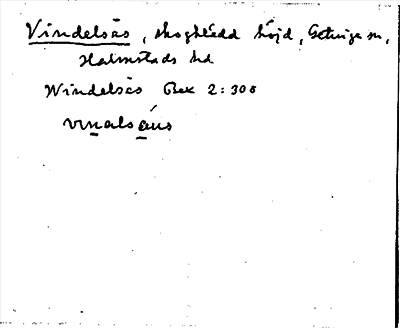 Vindelsås, skogklädd höjd, Getinge sn,
Halmstads hd
Windelsås Rek 2:306
vinalsáus